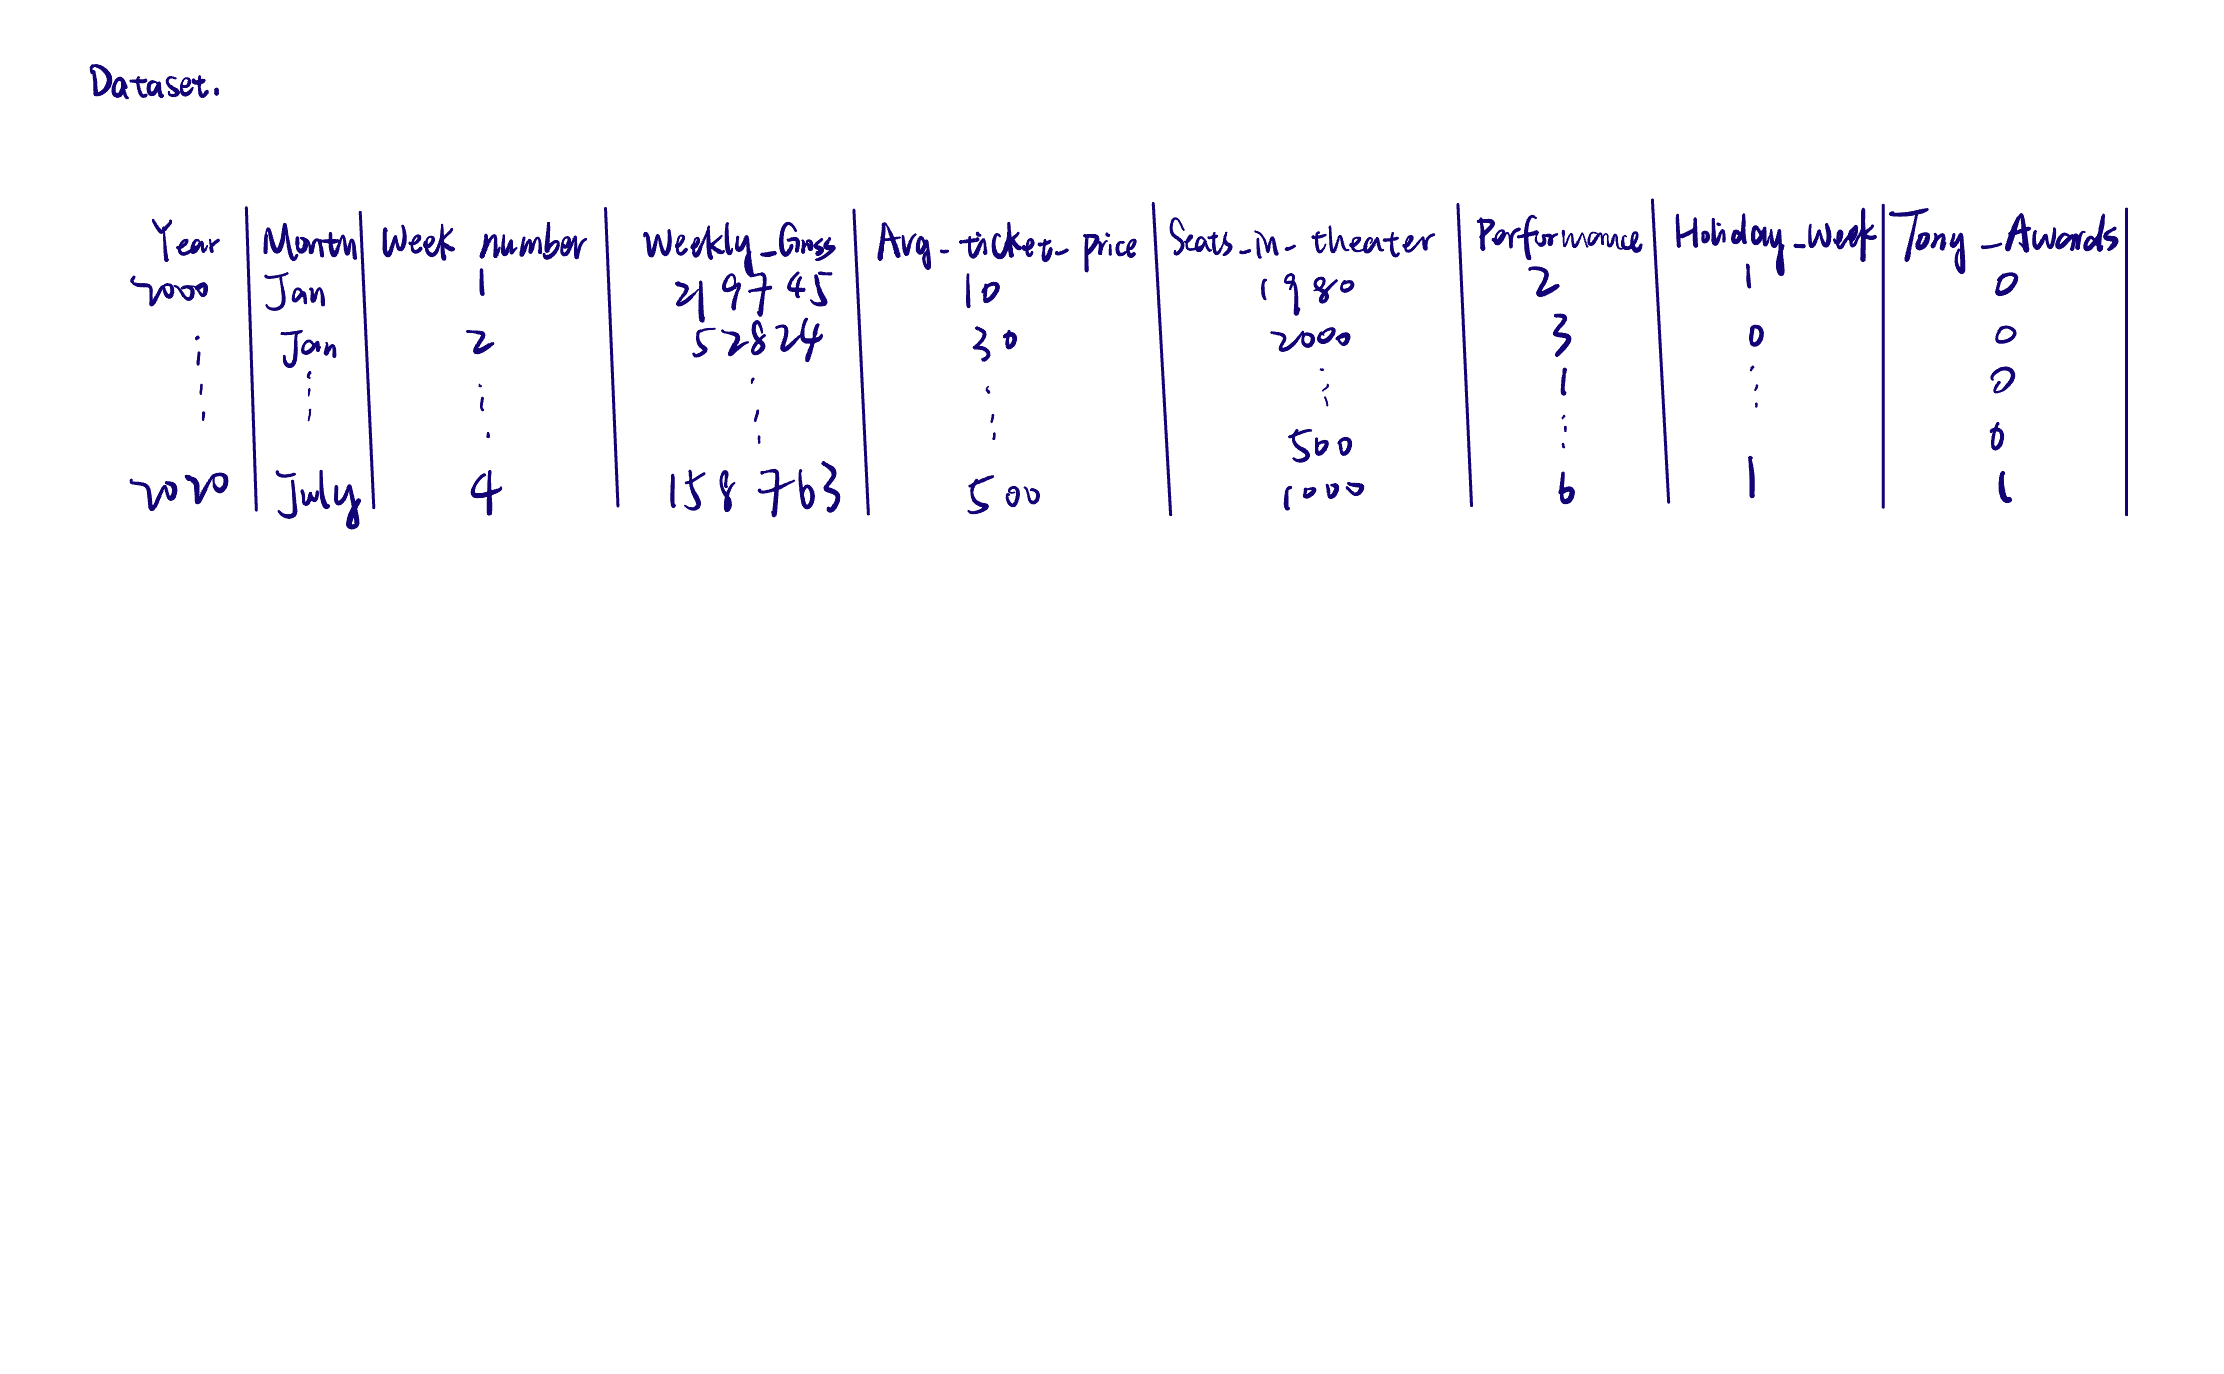 Dataset.
Year Month Week number Weekly_Gross Avg_ticket_price Seats_in_theater Performance Holiday_week Tony_Awards
2000 Jan 1 219745 10 1980 2 1 0
Jan 2 52824 30 2000 3 0 0
1 0
500 0
2020 July 4 158763 500 1000 6 1 1